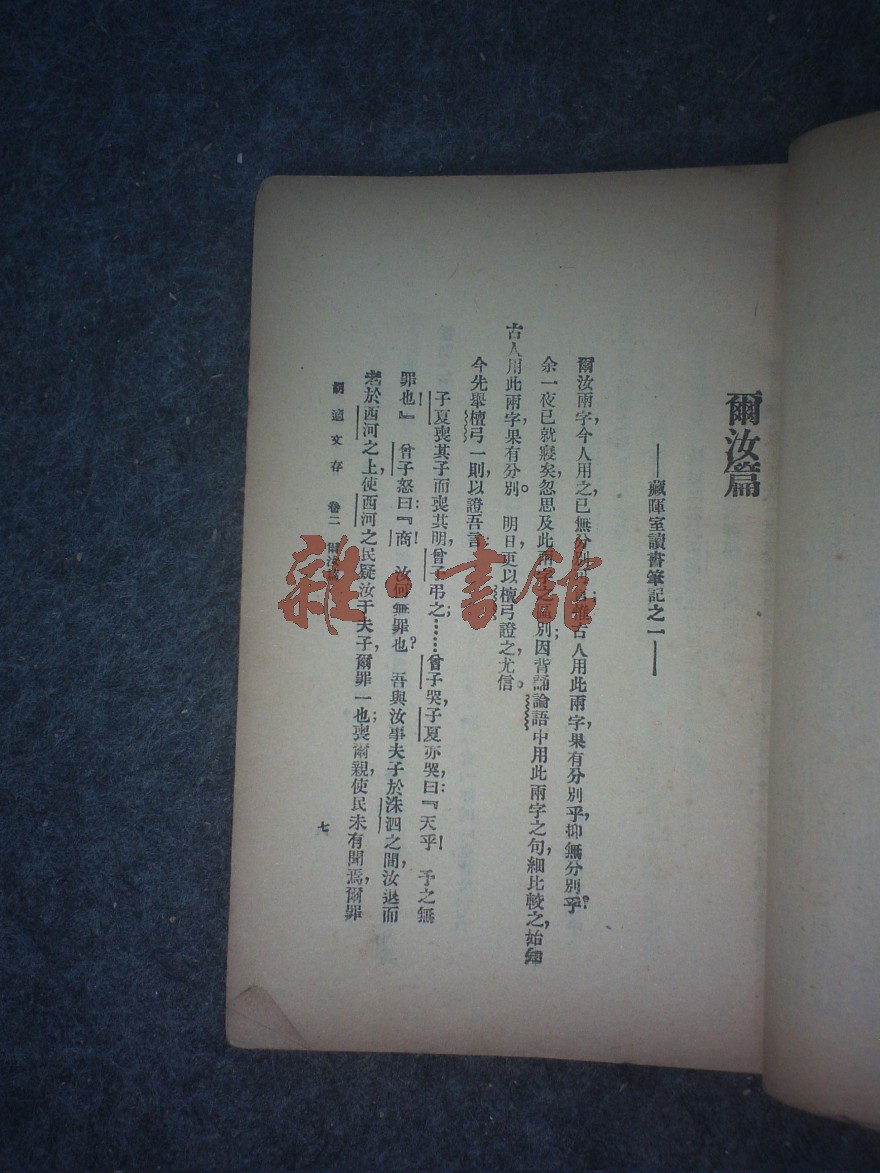 爾汝篇
——藏暉室讀書筆記之一——
爾汝兩字,今人用之,已無分別 古人用此兩字,果有分別乎,抑無分別乎?
余一夜已就寢矣,忽思及此兩 別;因背誦論語中用此兩字之句,細比較之,始知
古人用此兩字,果有分別。 明日,更以檀弓證之,尤信。
今先舉檀弓一則,以證吾言:
子夏喪其子而喪其明,曾子弔之;……曾子哭,子夏亦哭,曰:『天乎! 予之無
罪也!』 曾子怒曰:『商! 汝何無罪也? 吾與汝事夫子於洙泗之間,汝退而
老於西河之上,使西河之民疑汝于夫子,爾罪一也;喪爾親,使民未有聞焉,爾罪
胡適文存 卷二 爾汝篇
七
雜·書館